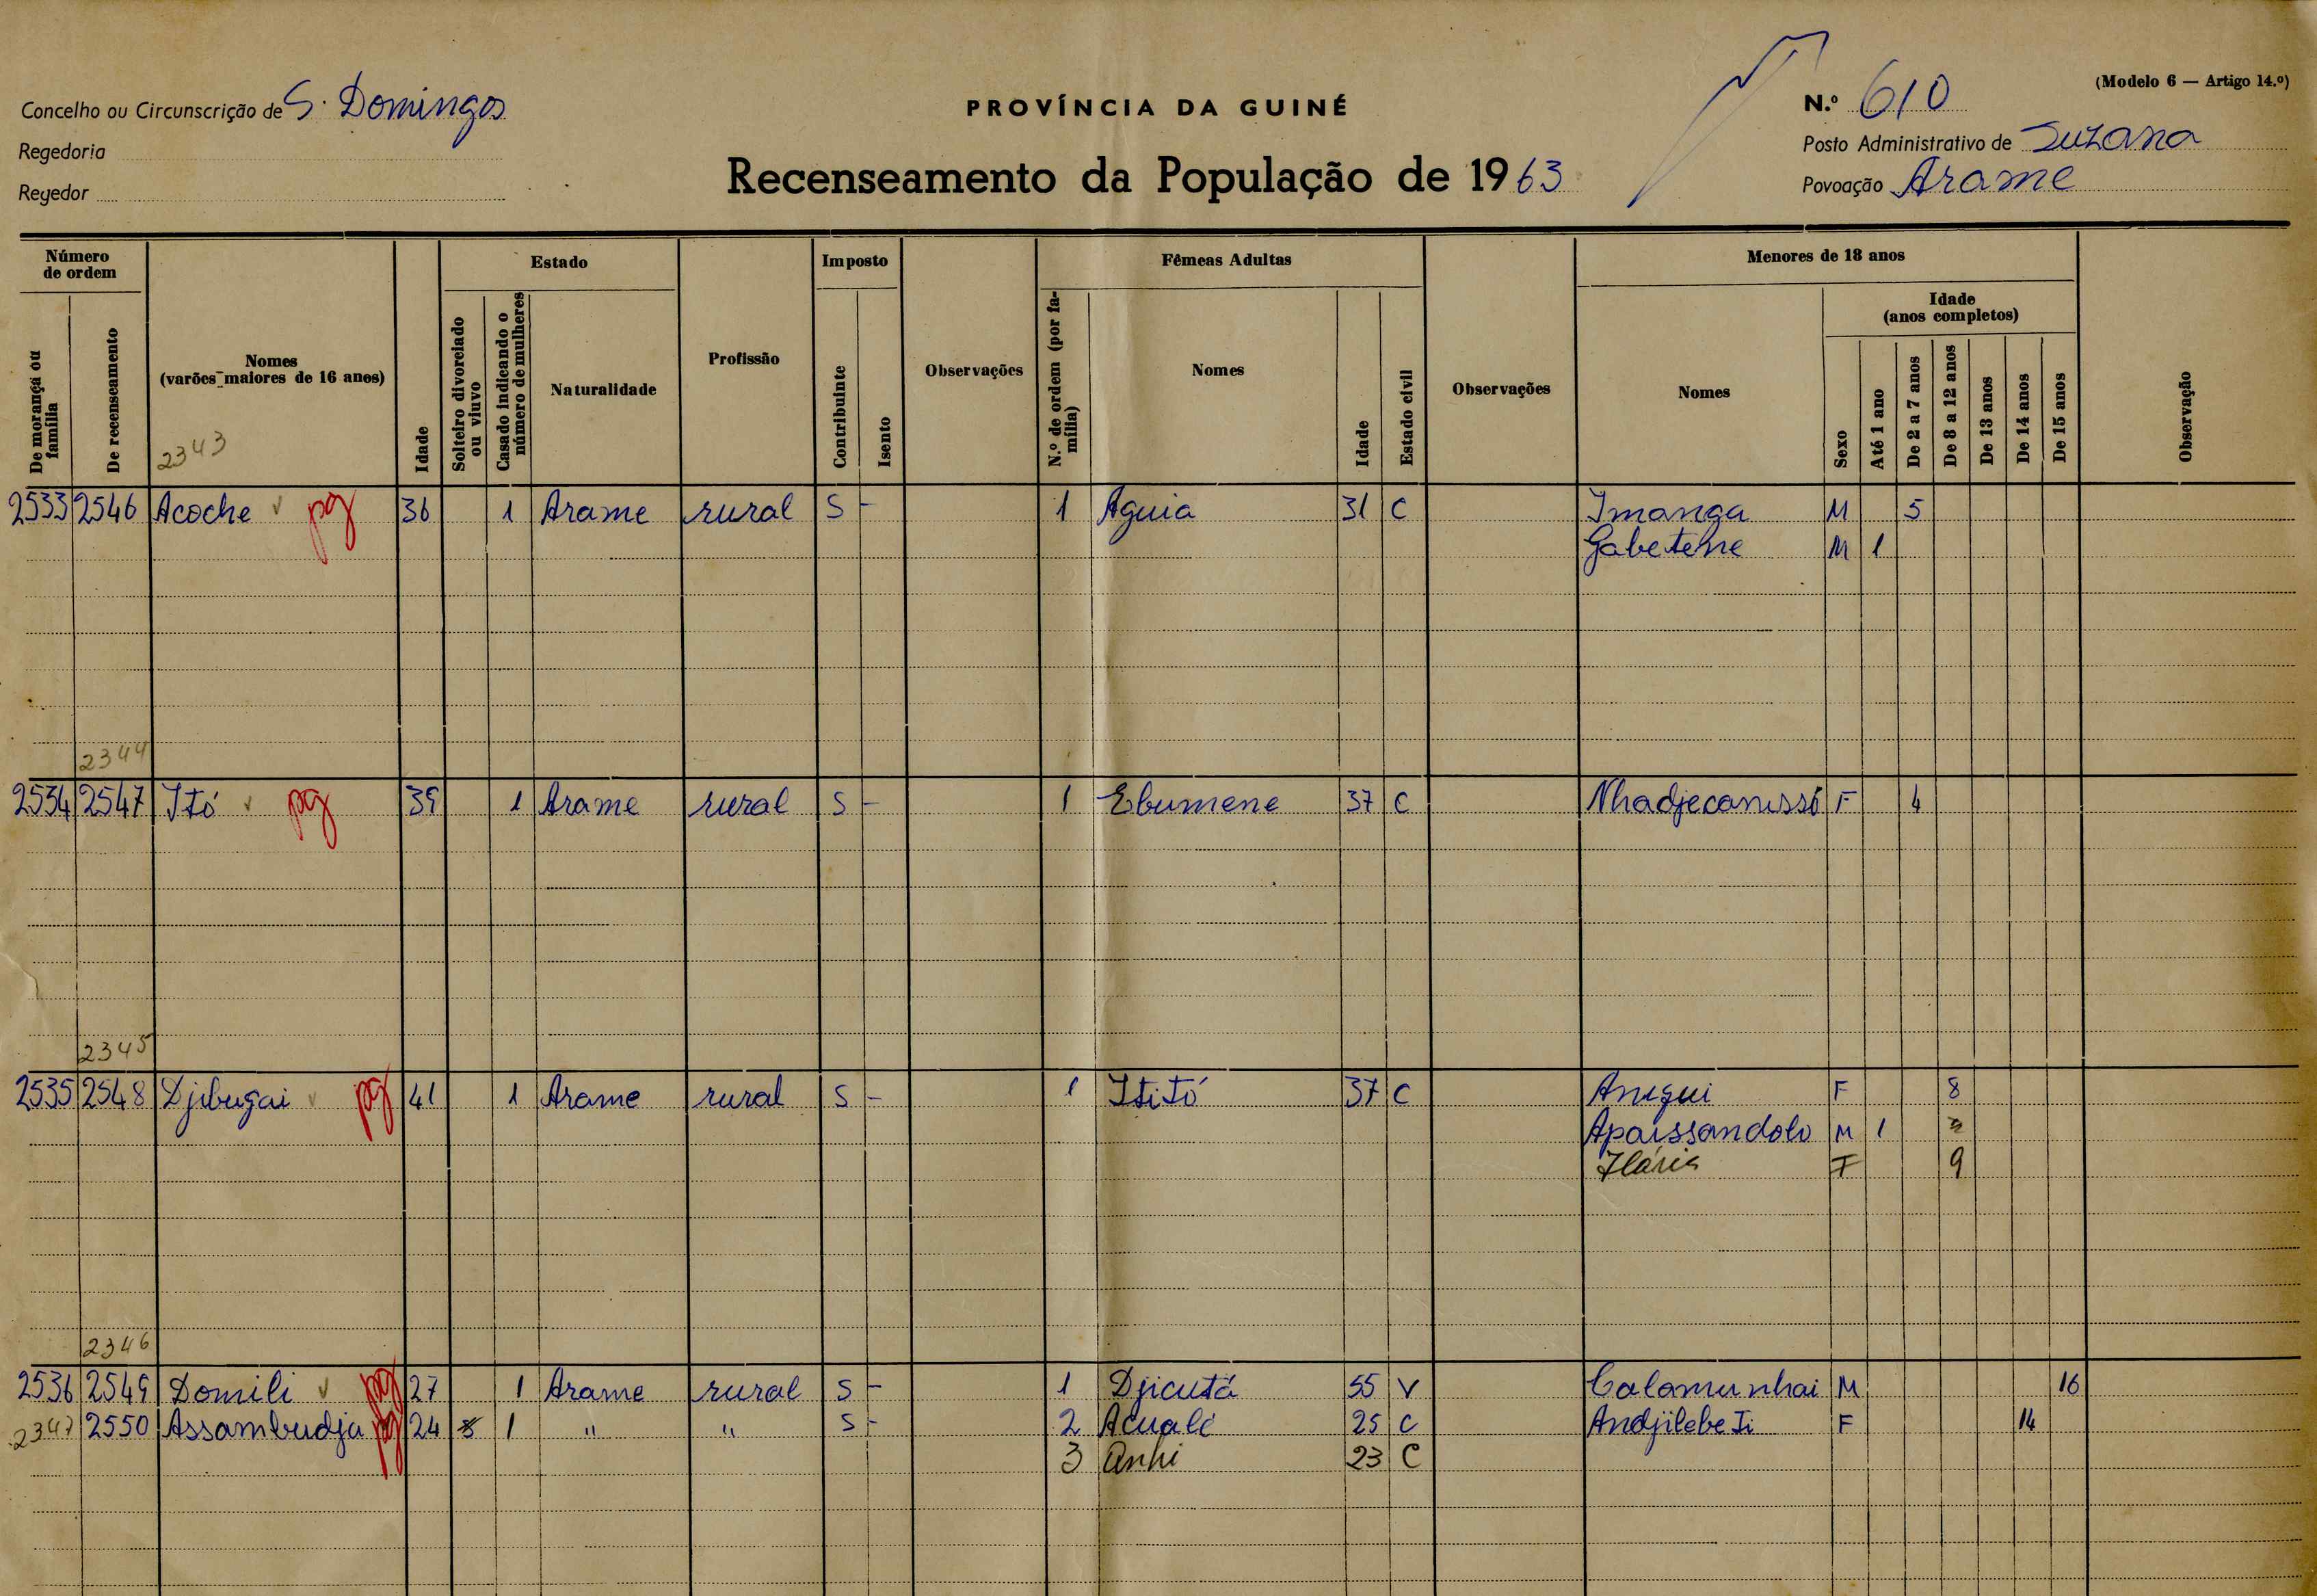 (Modelo 6 — Artigo 14.º)
Concelho ou Circunscrição de S. Domingos
PROVÍNCIA DA GUINÉ
N.º 610
Regedoria
Posto Administrativo de Suzana
Regedor
Recenseamento da População de 1963
Povoação Arame
Número de ordem
Estado
Imposto
Fêmeas Adultas
Menores de 18 anos
Idade (anos completos)
De morança ou família
De recenseamento
Nomes (varões maiores de 16 anos)
2343
Idade
Solteiro divorciado ou viuvo
Casado indicando o número de mulheres
Naturalidade
Profissão
Contribuinte
Isento
Observações
N.º de ordem (por família)
Nomes
Idade
Estado civil
Observações
Nomes
Sexo
Até 1 ano
De 2 a 7 anos
De 8 a 12 anos
De 13 anos
De 14 anos
De 15 anos
Observação
2533 2546 Acoche pg 36 1 Arame rural S - 1 Aguia 31 C Imanga M 5
Gabetene M 1
2344
2534 2547 Itó pg 39 1 Arame rural S - 1 Ebumene 37 C Nhadjecanussó F 4
2345
2535 2548 Djibugai pg 41 1 Arame rural S - 1 Ititó 37 C Anequi F 8
Apaissandolo M 1
Ilária F 9
2346
2536 2549 Domili pg 27 1 Arame rural S - 1 Djicutá 55 V Calamunhai M 16
2347 2550 Assambudja pg 24 1 " " S - 2 Acualé 25 C Andjilebeti F 14
3 Anhi 23 C